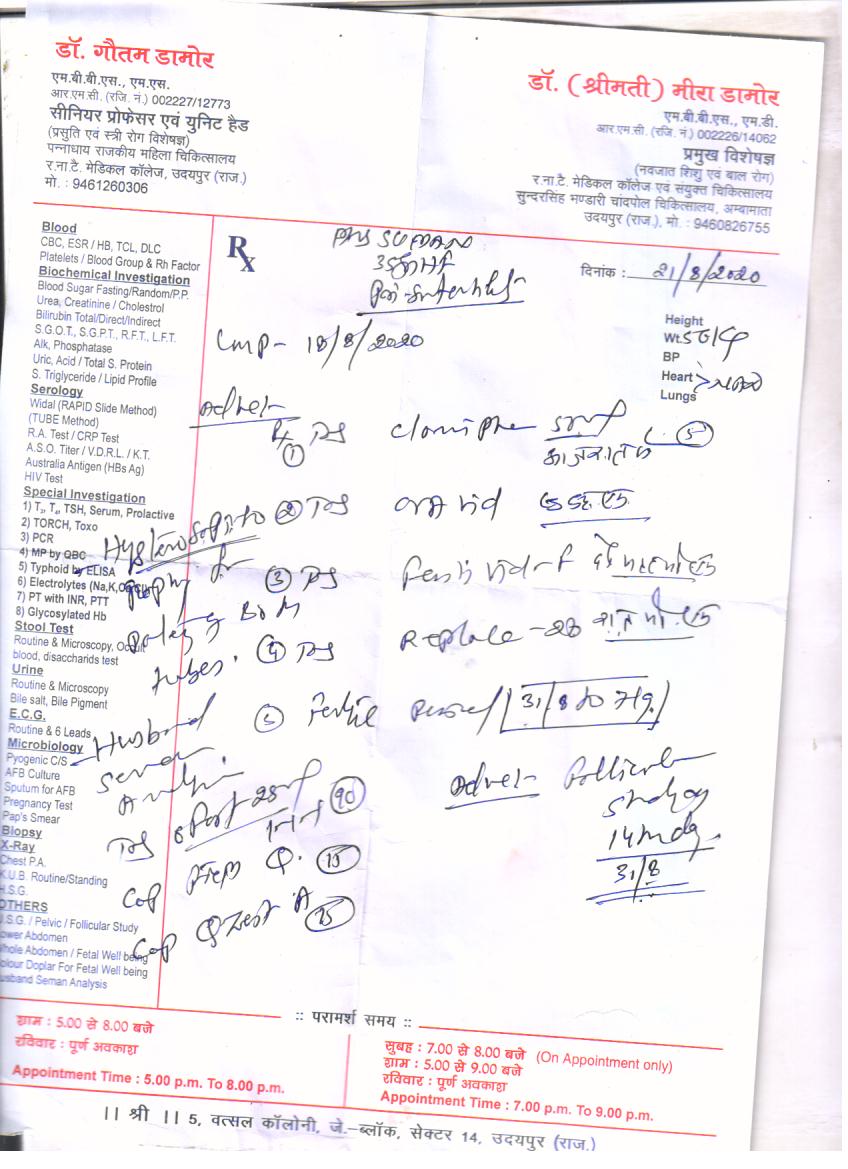 डॉ. गौतम डामोर
एम.बी.बी.एस., एम.एस.
आर.एम.सी. (रजि. नं.) 002227/12773
सीनियर प्रोफेसर एवं युनिट हैड
(प्रसुति एवं स्त्री रोग विशेषज्ञ)
पन्नाधाय राजकीय महिला चिकित्सालय
र.ना.टै. मेडिकल कॉलेज, उदयपुर (राज.)
मो. : 9461260306
डॉ. (श्रीमती) मीरा डामोर
एम.बी.बी.एस., एम.डी.
आर.एम.सी. (रजि. नं.) 002226/14062
प्रमुख विशेषज्ञ
(नवजात शिशु एवं बाल रोग)
र.ना.टै. मेडिकल कॉलेज एवं संयुक्त चिकित्सालय
सुन्दरसिंह मण्डारी चांदपोल चिकित्सालय, अम्बामाता
उदयपुर (राज.), मो. : 9460826755
Blood
CBC, ESR / HB, TCL, DLC
Platelets / Blood Group & Rh Factor
Biochemical Investigation
Blood Sugar Fasting/Random/P.P.
Urea, Creatinine / Cholestrol
Bilirubin Total/Direct/Indirect
S.G.O.T., S.G.P.T., R.F.T., L.F.T.
Alk, Phosphatase
Uric, Acid / Total S. Protein
S. Triglyceride / Lipid Profile
Serology
Widal (RAPID Slide Method)
(TUBE Method)
R.A. Test / CRP Test
A.S.O. Titer / V.D.R.L. / K.T.
Australia Antigen (HBs Ag)
HIV Test
Special Investigation
1) T3, T4, TSH, Serum, Prolactive
2) TORCH, Toxo
3) PCR
4) MP by QBC
5) Typhoid by ELISA
6) Electrolytes (Na,K,
7) PT with INR, PTT
8) Glycosylated Hb
Stool Test
Routine & Microscopy, Occult
blood, disaccharids test
Urine
Routine & Microscopy
Bile salt, Bile Pigment
E.C.G.
Routine & 6 Leads
Microbiology
Pyogenic C/S
AFB Culture
Sputum for AFB
Pregnancy Test
Pap's Smear
Biopsy
X-Ray
Chest P.A.
K.U.B. Routine/Standing
H.S.G.
OTHERS
U.S.G. / Pelvic / Follicular Study
ower Abdomen
hole Abdomen / Fetal Well being
olour Doplar For Fetal Well being
usband Seman Analysis
Rx
दिनांक : 21/8/2020
Height
Wt. 56 kg
BP
Heart
Lungs
LMP - 18/8/2020
Advel-
Rx
① clomiphe
②
③
④ Replace -20
⑤ Fertile Period / 31/8 to
Husband
Semen
Advel- Follicular
Study
14
31/8
90
Cap Q. 15
Cap
:: परामर्श समय ::
शाम : 5.00 से 8.00 बजे
रविवार : पूर्ण अवकाश
Appointment Time : 5.00 p.m. To 8.00 p.m.
सुबह : 7.00 से 8.00 बजे (On Appointment only)
शाम : 5.00 से 9.00 बजे
रविवार : पूर्ण अवकाश
Appointment Time : 7.00 p.m. To 9.00 p.m.
।। श्री ।। 5, वत्सल कॉलोनी, जे.-ब्लॉक, सेक्टर 14, उदयपुर (राज.)